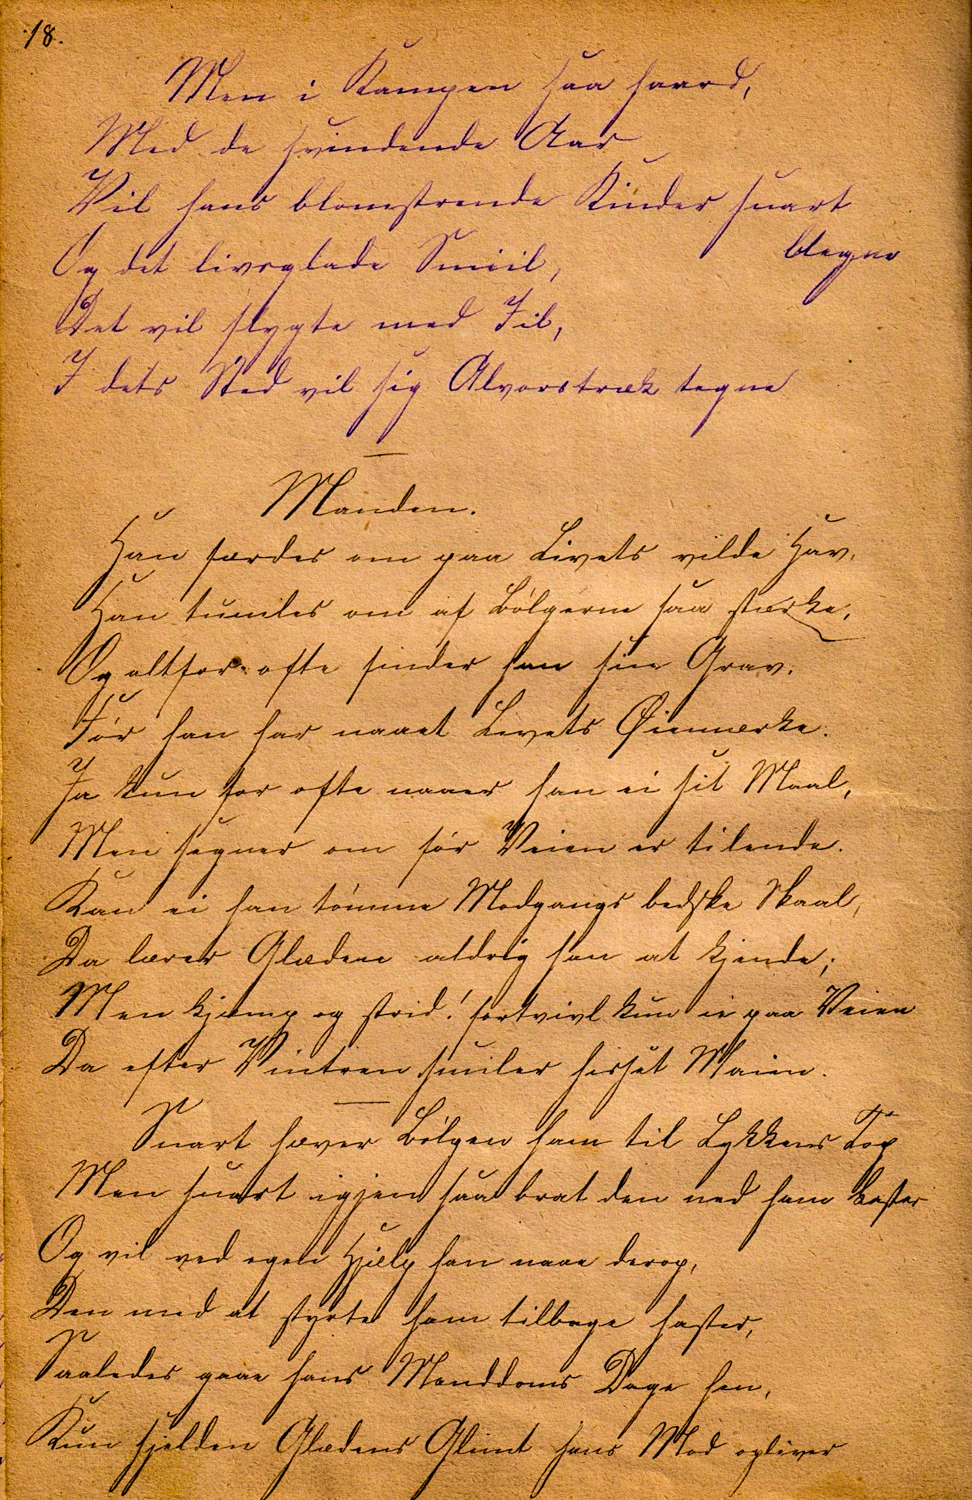 18.
Men i Kampen saa haard,
Med de svindende Aar
Vil hans blomstrende Kinder snart
blegne
Og det livsglade Smiil,
Det vil flygte med Iil,
I dets Sted vil sig Alvorstræk tegne
Manden.
Han færdes om paa Livets vilde Hav,
Han tumles om af Bølgerne saa stærke,
Og altfor ofte finder han sin Grav,
Før han har naaet Livets Øiemærke.
Ja kun for ofte naaer han ei sit Maal,
Men segner om før Veien er tilende.
Kan ei han tømme Modgangs bedske Skaal,
Da lærer Glæden aldrig han at kjende;
Men kjæmp og strid! fortvivl kun ei paa Veien
Da efter Vintren smiler hisset Maien.
Snart hæver Bølgen ham til Lykkens Top
Men snart igjen saa brat den ned ham kaster
Og vil ved egen Hjælp han naae derop,
Den med at styrte ham tilbage haster,
Saaledes gaae hans Manddoms Dage hen,
Kun sjelden Glædens Glimt hans Mod opliver